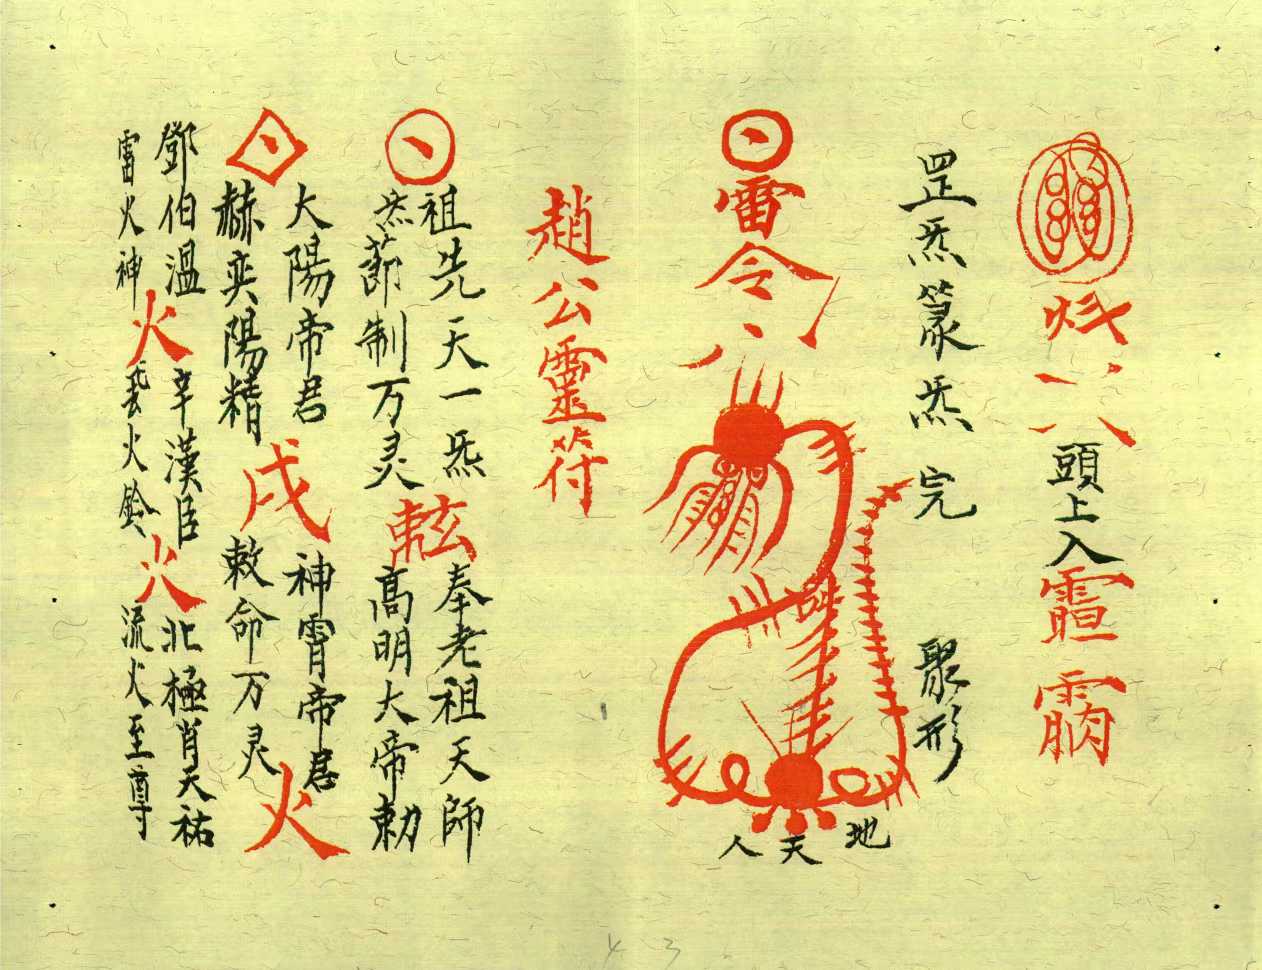 頭上入
罡炁篆炁 完 聚形
雷令
地
天
人
趙公靈符
祖先天一炁 奉老祖天師
炁節制万灵 高明大帝勅
大陽帝君 神霄帝君
火
赫奕陽精 戌 敕命万灵
鄧伯溫 辛漢臣 北極肖天祐
火 火
雷火神 火鈴 流火至尊
43